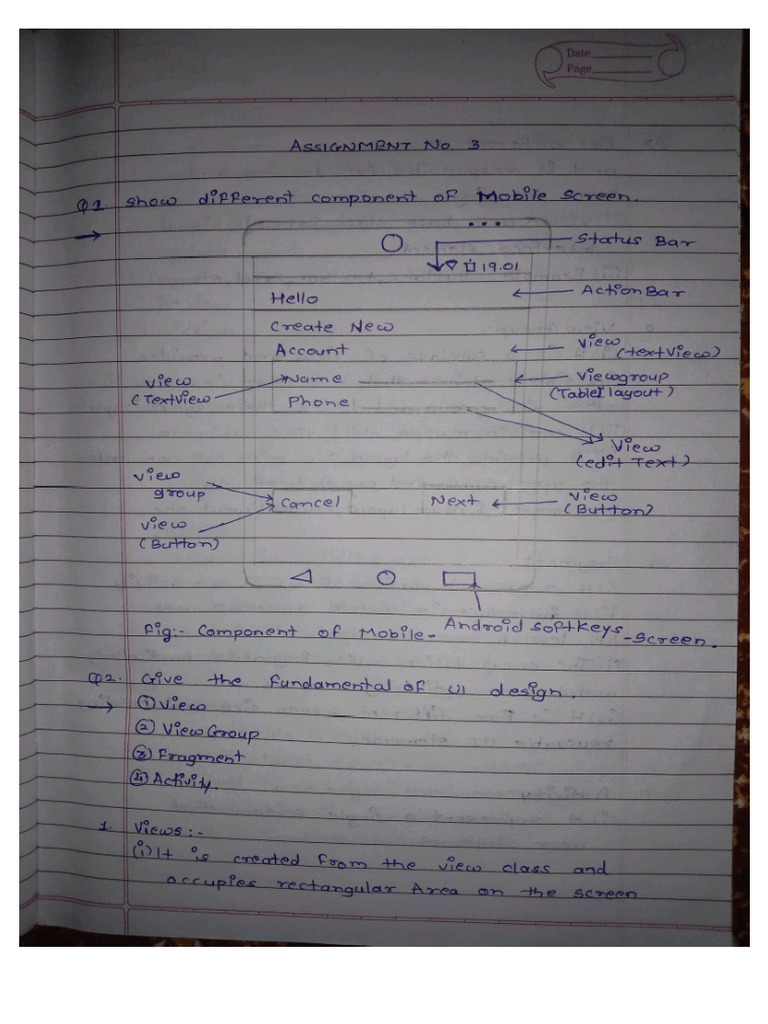 Date
Page
ASSIGNMENT No. 3
Q1. Show different component of Mobile Screen.
Status Bar
19.01
Hello
Action Bar
Create New
Account
View
(textView)
View
(TextView
Name
Viewgroup
(Table layout)
Phone
View
(edit Text)
View
group
Cancel
Next
View
(Button)
View
(Button)
Android Softkeys
Fig:- Component of Mobile - Screen.
Q2. Give the fundamental of UI design.
① View
② ViewGroup
③ Fragment
④ Activity.
1. Views:-
(i) It is created from the view class and
occupies rectangular Area on the screen